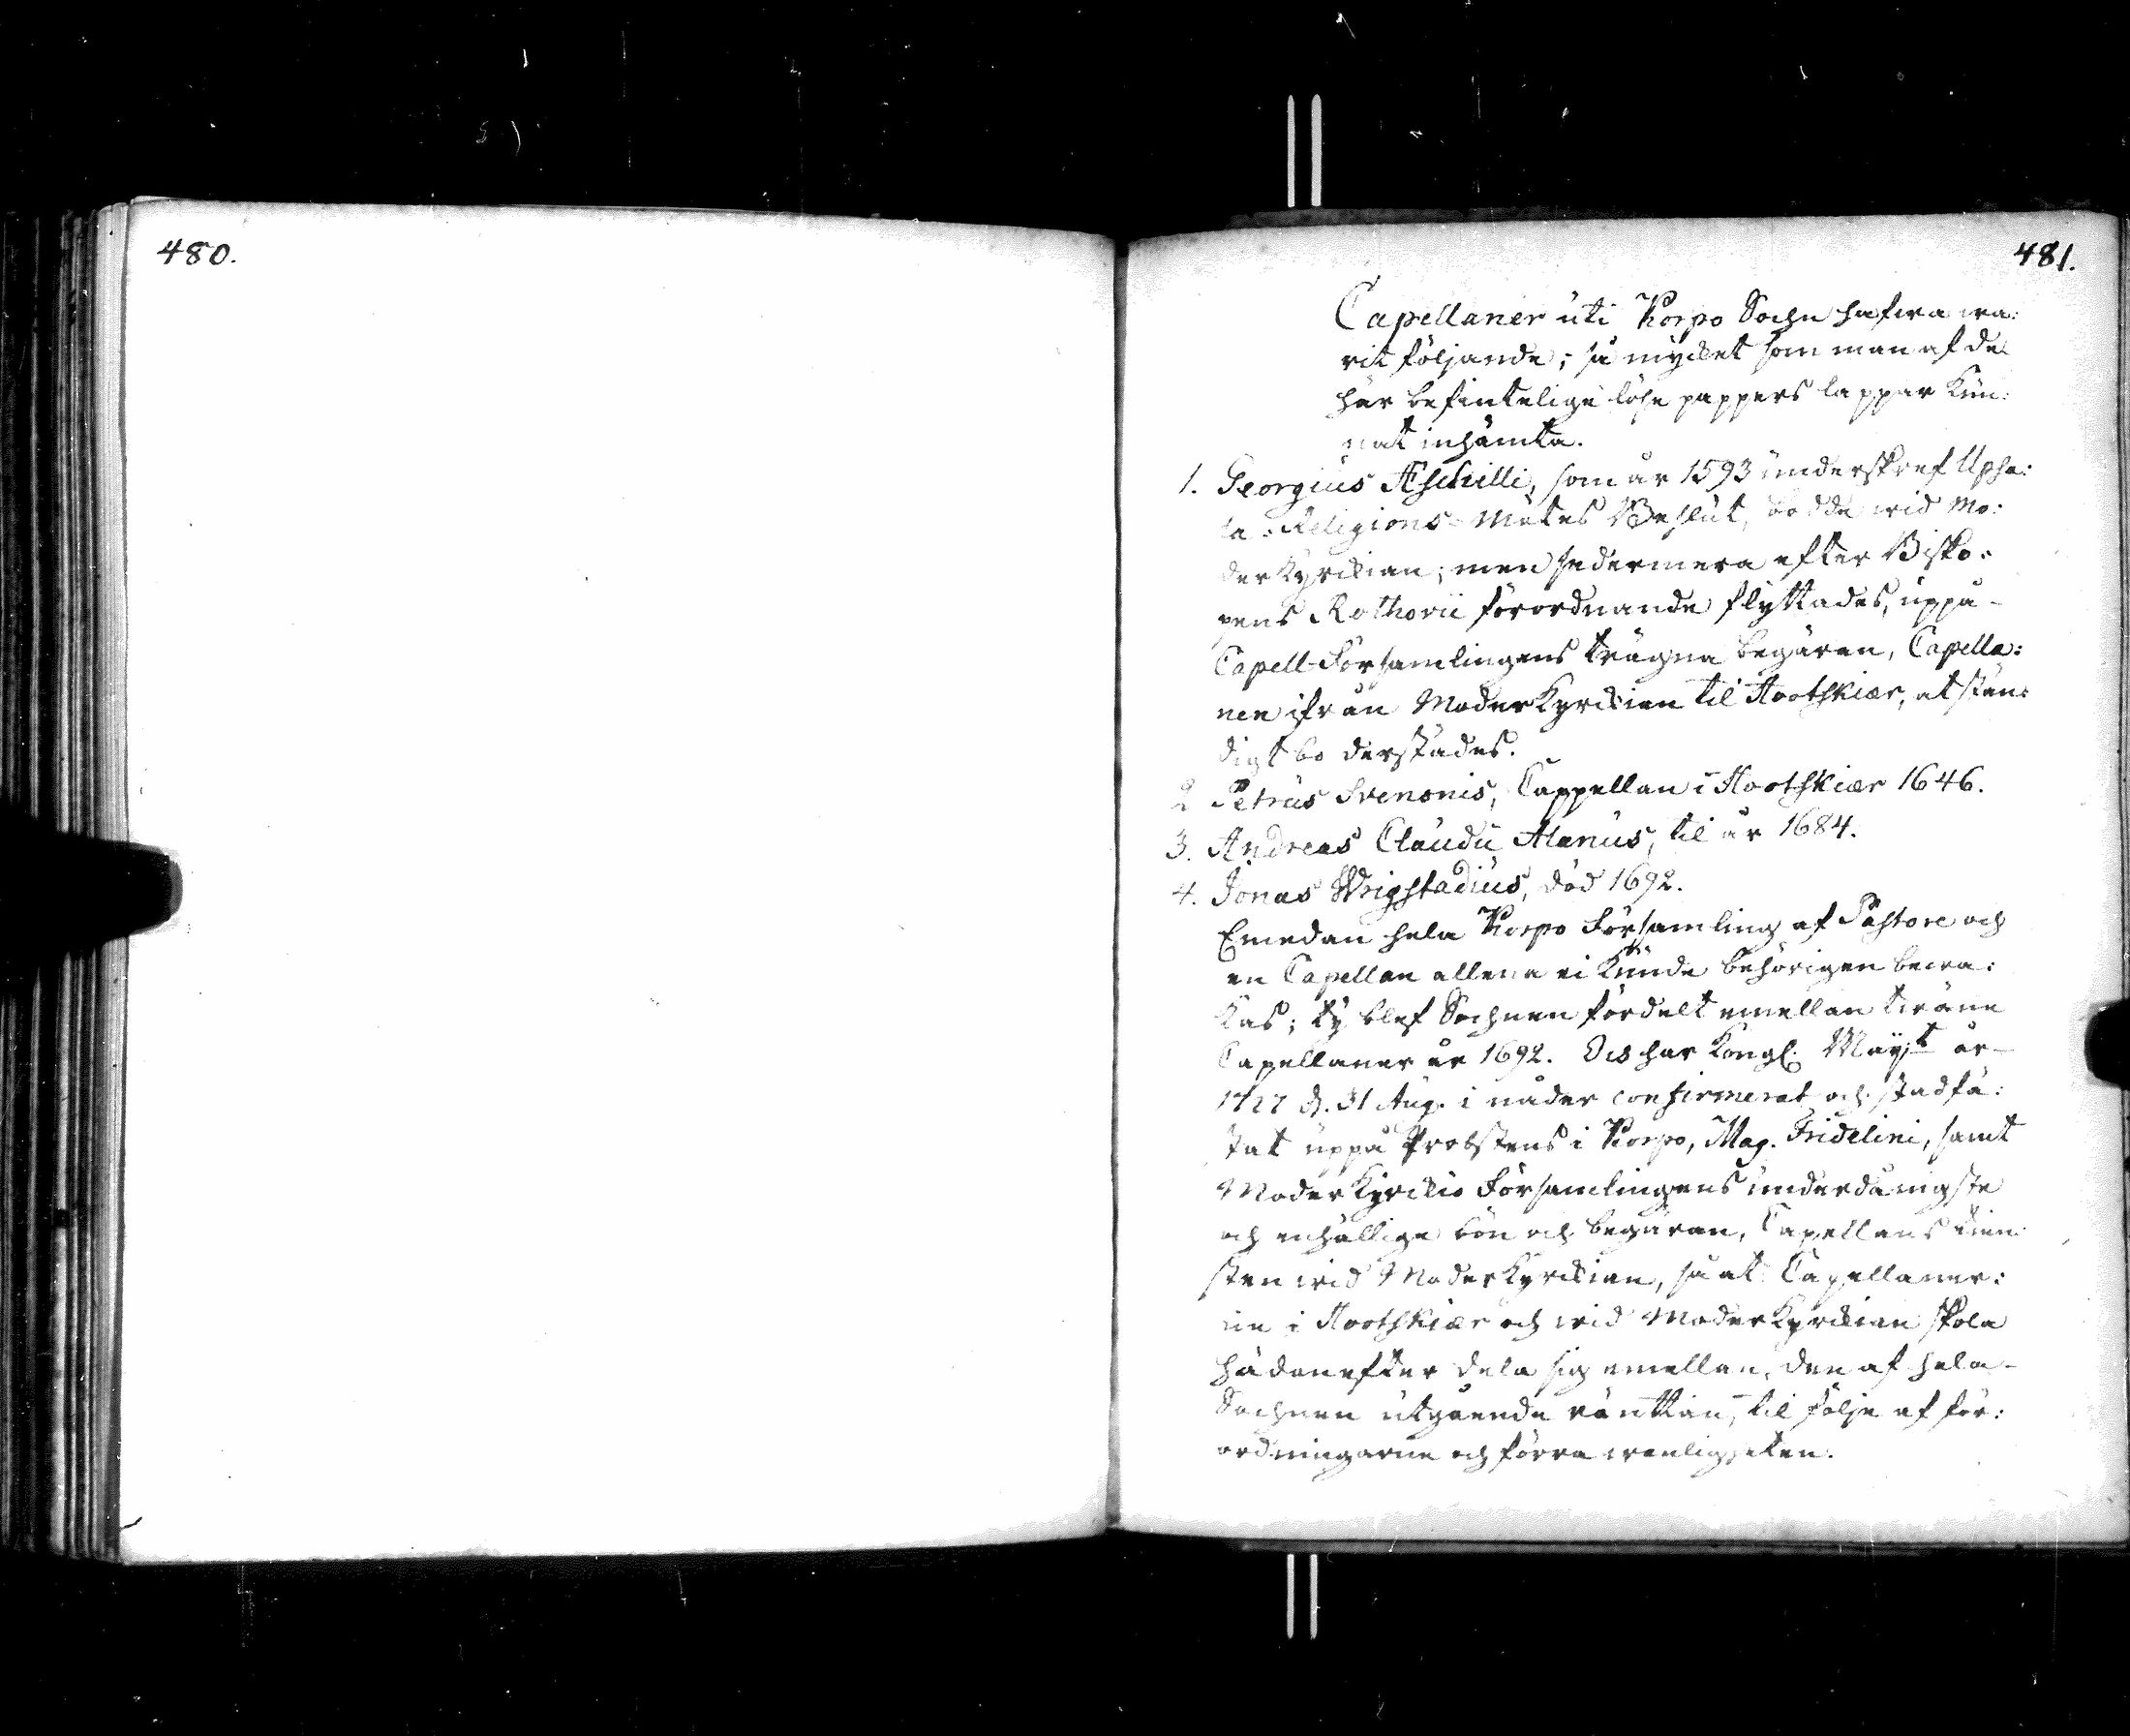 480.
481.
Capellaner uti Korpo Sochn hafwa wa:
rit följande; så mycket som man af de
här befintelige löse pappers lappar kun:
nat inhämta.
1. Georgius Æschilli, som år 1593 underskref Upsa:
la-Religions-Mötes Beslut, bodde wid Mo:
derkyrckian; men sedermera efter Bisko:
pens Rothovii förordnande flyttades, uppå
Capell-Församlingens trägna begäran, Capella:
nen ifrån Moderkyrckian til Hootskiær, at stän:
digt bo derstädes.
2 Petrus Svenonis, Cappellan i Hootskiær 1646.
3. Andreas Claudii Alanus, til år 1684.
4. Jonas Wrigstadius, död 1692.
Emedan hela Korpo Församling af Pastore och
en Capellan allena ei kunde behörigen bewa:
kas; ty blef Sochnen fördelt emellan twäne
Capellaner år 1692. Och har Kongl. Maÿt år
1727 d. 31 Aug. i nåder confirmerat och stadfä:
stat uppå Probstens i Korpo, Mag. Fridelini, samt
Moderkyrckio Församlingens underdånigste
och enhällige bön och begäran, Capellans tien:
sten wid Moderkyrckian, så at Capellaner:
ne i Hootskiær och wid Moderkyrckian skola
hädanefter dela sig emellan, den af hela
Sochnen utgående ränttan, til följe af för:
ordningarne och förra wanligheten.